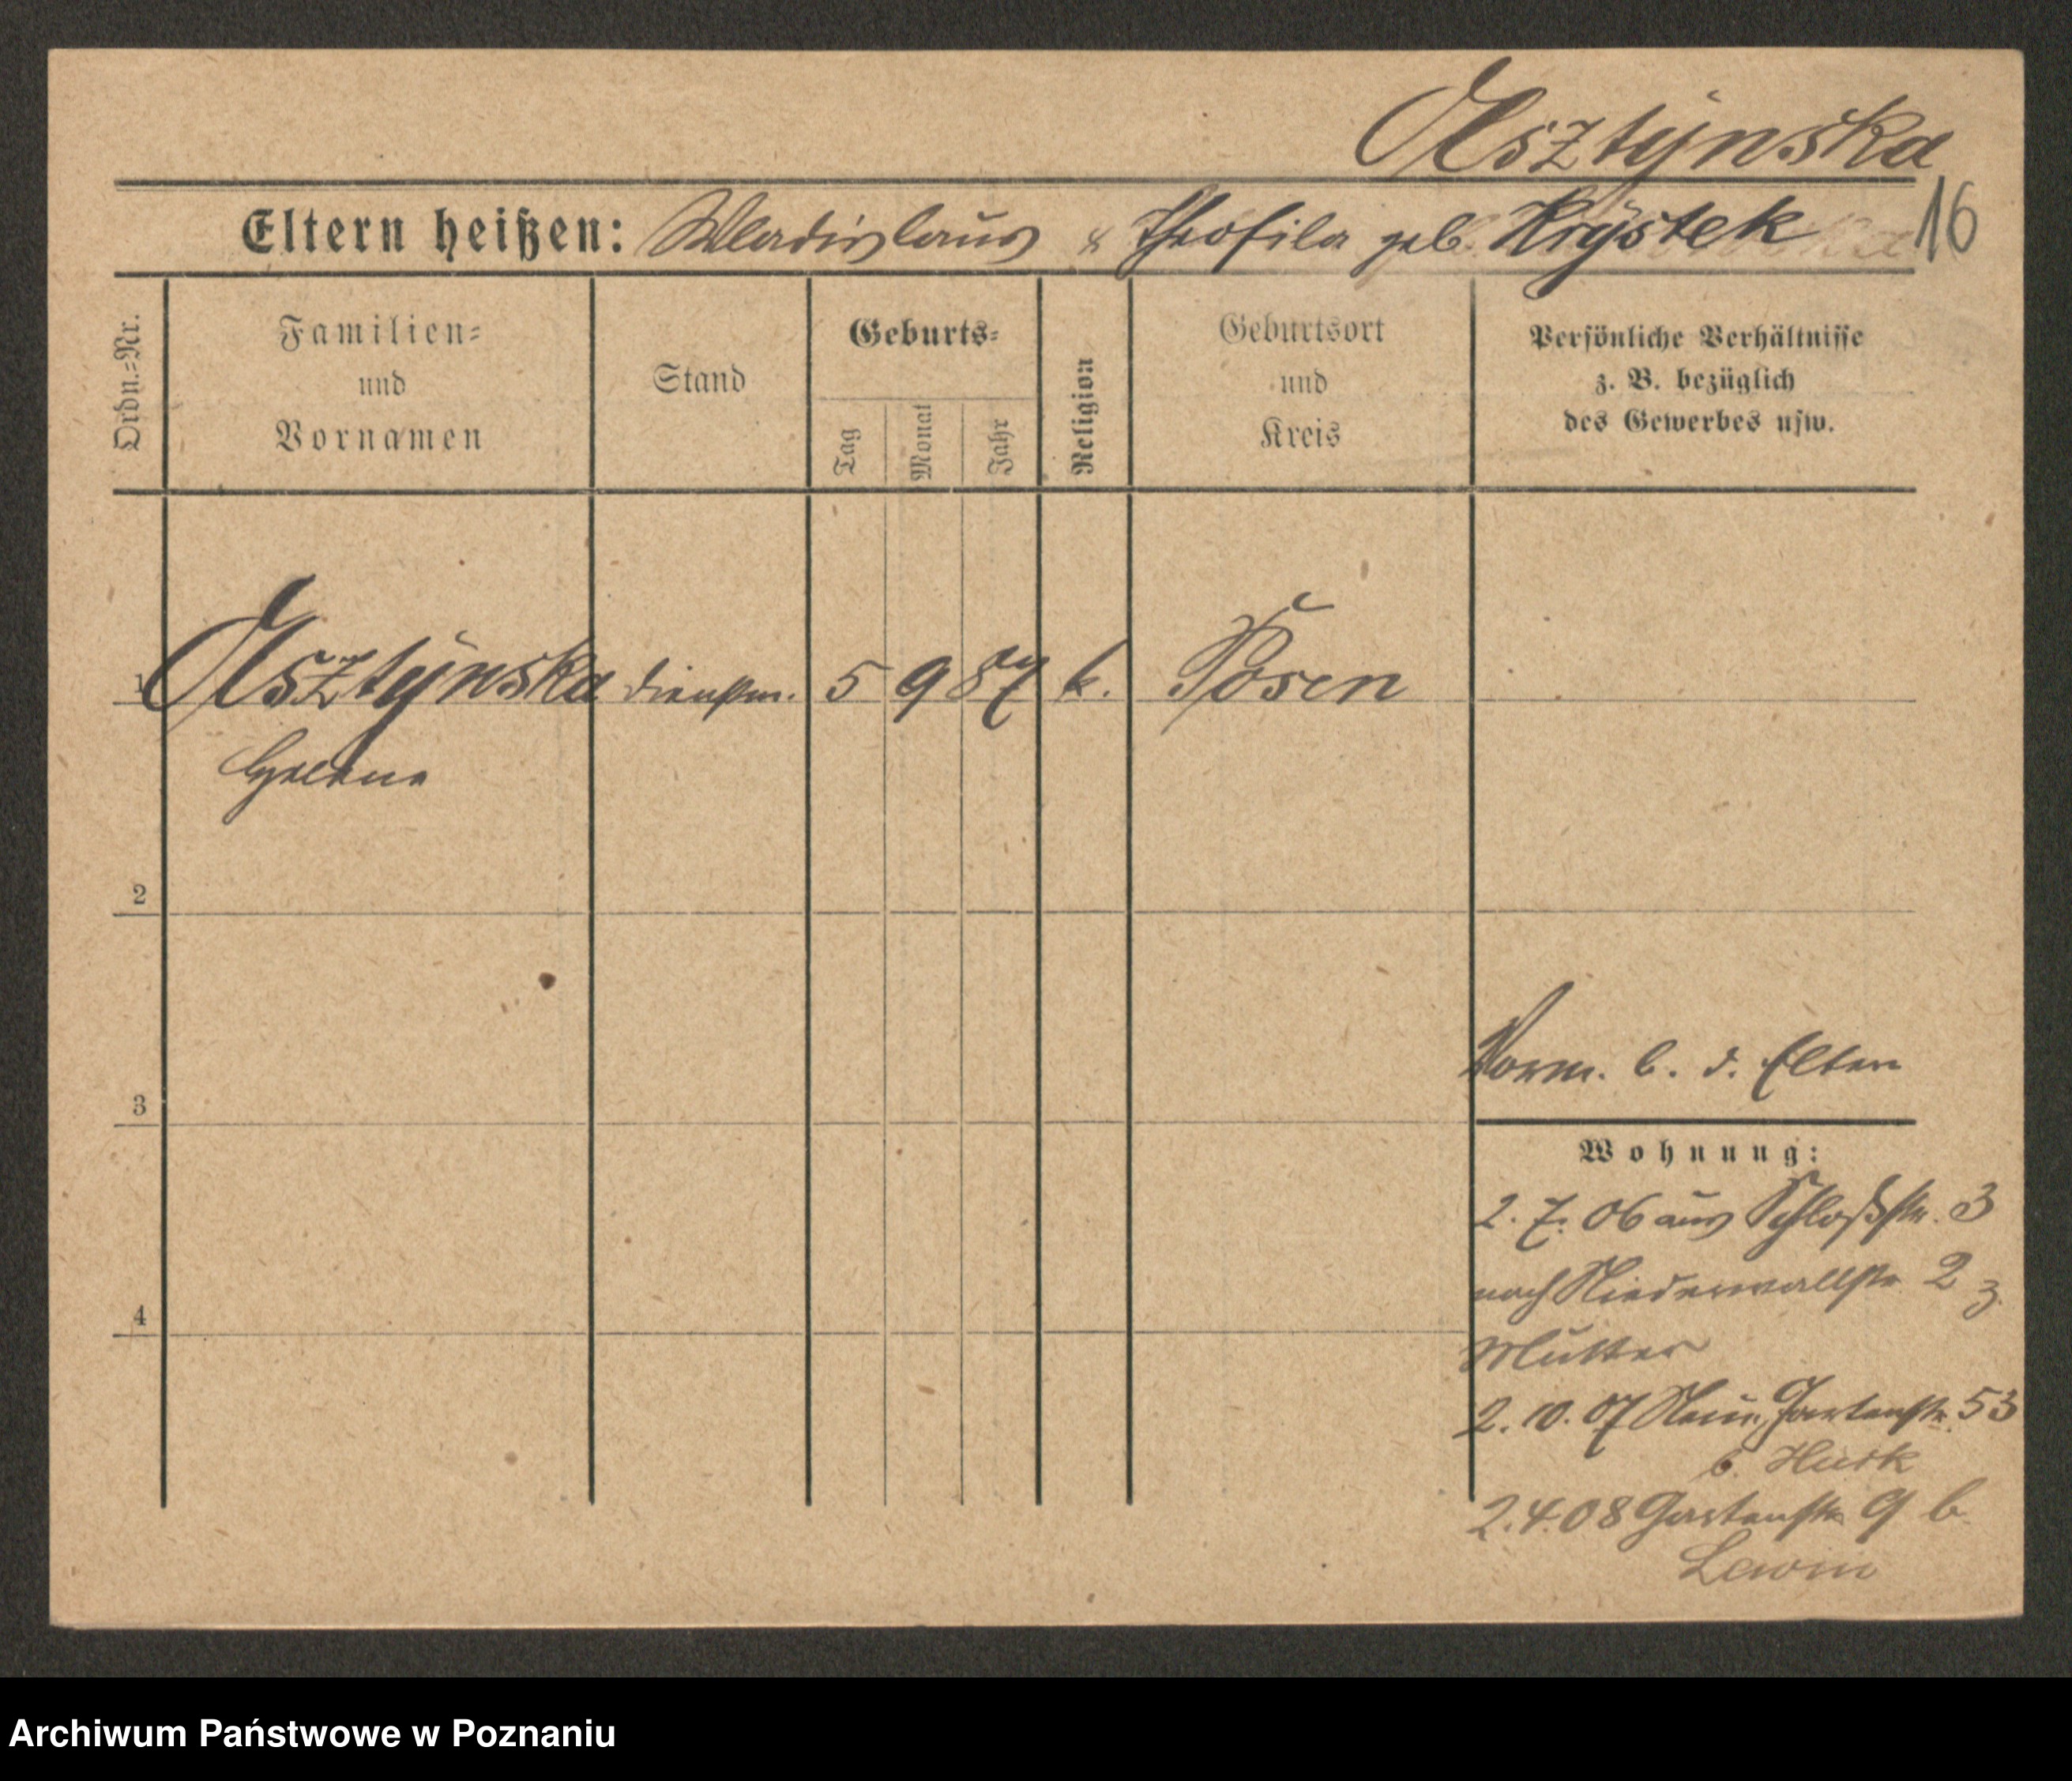 Olsztynska
16
Eltern heißen: Wladislaus & Theofila geb. Krystek
Ordn.=Nr.
Familien=
und
Vornamen
Stand
Geburts=
Tag
Monat
Jahr
Religion
Geburtsort
und
Kreis
Persönliche Verhältnisse
z. B. bezüglich
des Gewerbes usw.
1 Olsztynska Dienstm. 5 9 87 k. Posen
Helene
2
3
4
Vorm. b. d. Eltern
Wohnung:
2. 7. 06 aus Schloßstr. 3
nach Niederwallstr 2 z.
Mutter
2. 10. 07 Neue Gartenstr. 53
b.
2. 4. 08 Gartenstr 9 b.
Lewin
Archiwum Państwowe w Poznaniu